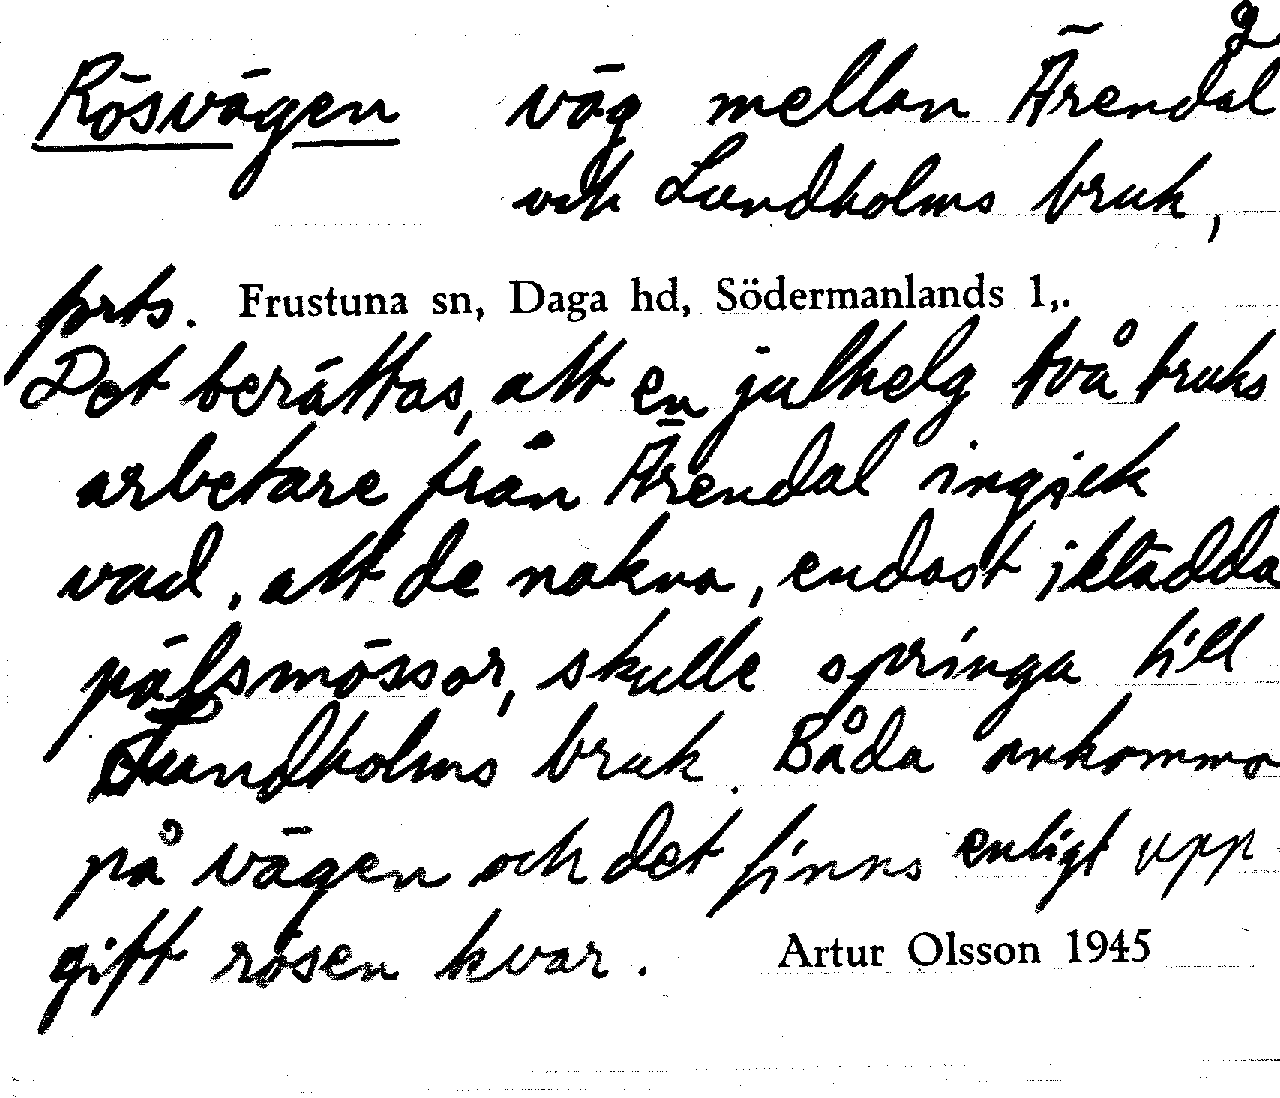 2
Rösvägen väg mellan Ärendal
och Lundholms bruk,
forts. Frustuna sn, Daga hd, Södermanlands l,.
Det berättas, att en julhelg två bruks
arbetare från Ärendal ingick
vad, att de nakna, endast iklädda
pälsmössor, skulle springa till
Lundholms bruk. Båda omkommo
på vägen och det finns enligt upp
gift rösen kvar. Artur Olsson 1945